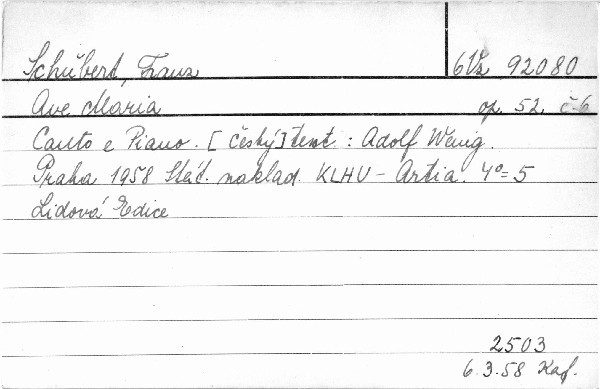 Schubert, Franz 6Vz 92080
Ave Maria op. 52, č 6
Canto e Piano. [Český] text : Adolf Wenig.
Praha 1958 Stát. naklad. KLHU - Artia. 4° = 5
Lidová Edice
2503
6.3.58 Kaf.